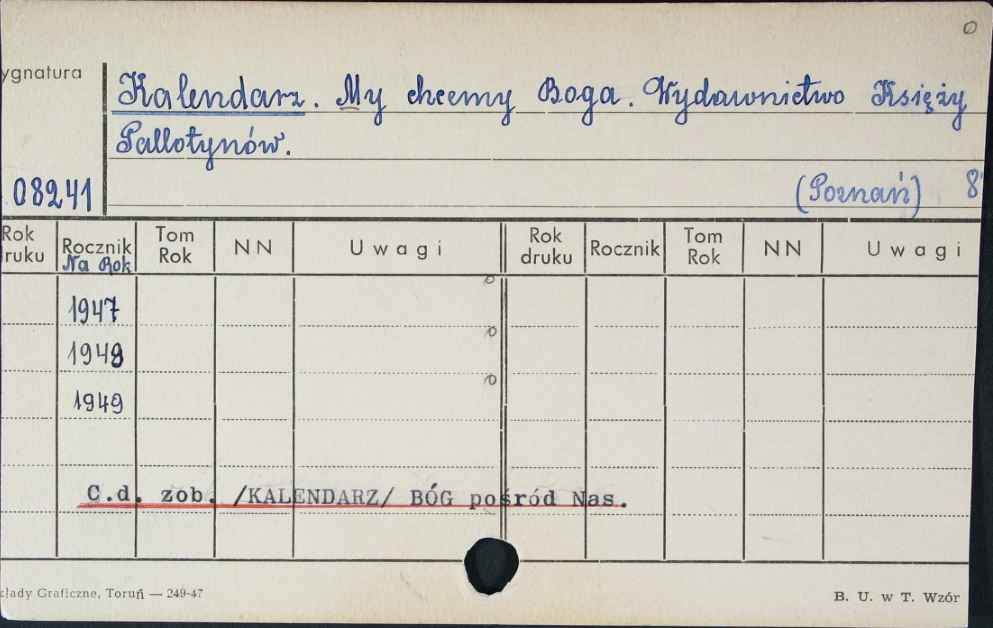 o
ygnatura
Kalendarz. My chcemy Boga. Wydawnictwo Księży
Pallotynów.
08241
(Poznań) 8°
Rok druku Rocznik Tom Rok NN Uwagi Rok druku Rocznik Tom Rok NN Uwagi
Na Rok
1947 o
1948 o
1949 o
C.d. zob. /KALENDARZ/ BÓG pośród Nas.
kłady Graficzne, Toruń — 249-47 B. U. w T. Wzór